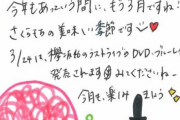 今年もあっという間に、もう3月ですね!
さくらもちの美味しい季節です
3/24は、欅坂46のラストライブのDVD・ブルーレイが
発売されます みてくださいねー
今月も、楽しみましょう